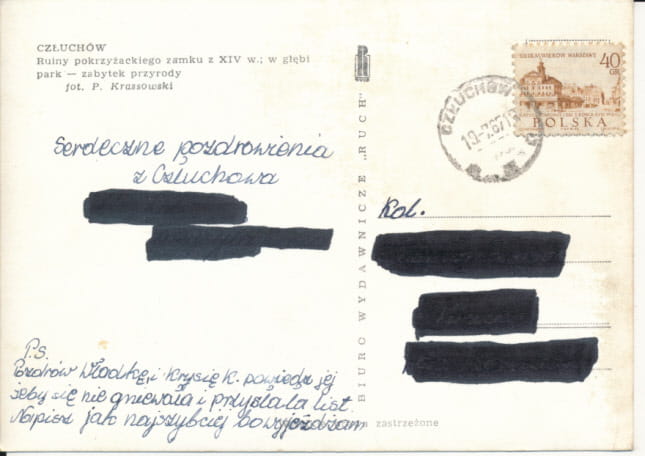 CZŁUCHÓW
Ruiny pokrzyżackiego zamku z XIV w.; w głębi
park — zabytek przyrody
fot. P. Krassowski
Serdeczne pozdrowienia
z Człuchowa
P.S.
Pozdrów Włodkę i Krysię K. powiedz jej
żeby się nie gniewała i przysłała list.
Napisz jak najszybciej bo wyjeżdżam
zastrzeżone
BIURO WYDAWNICZE „RUCH"
CZŁUCHÓW
40
GR
POLSKA
Kol.